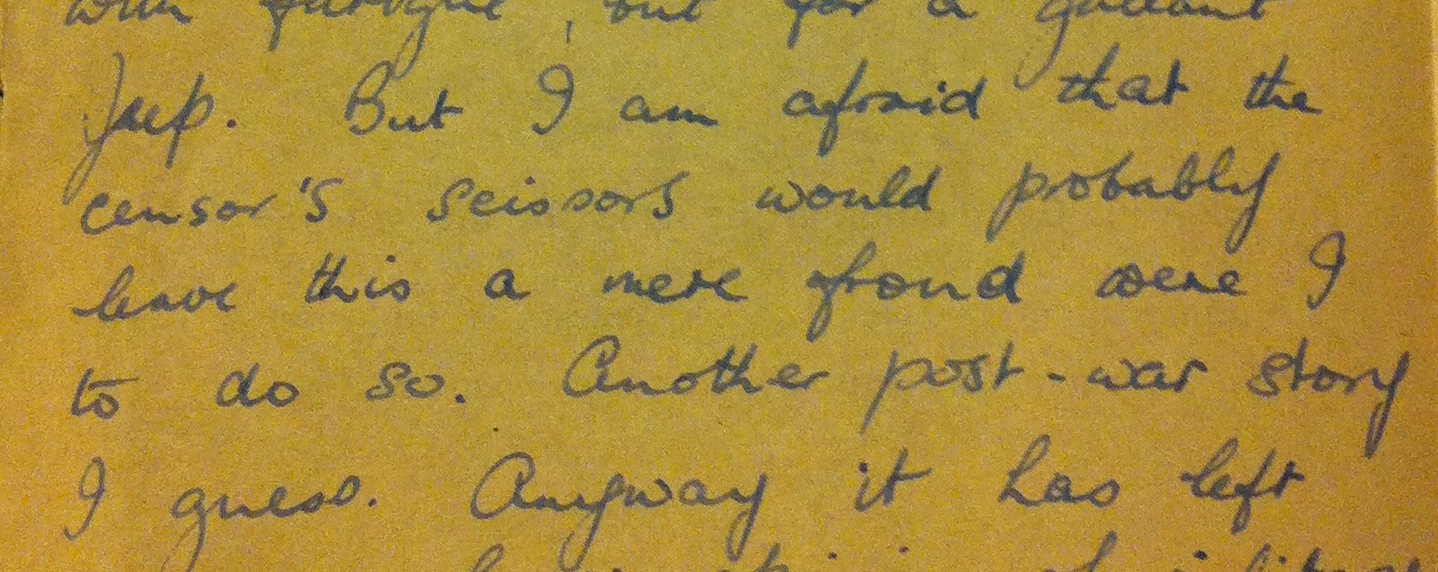 with fatigue, but for a gallant
Jeep. But I am afraid that the
censor's scissors would probably
leave this a mere frond were I
to do so. Another post-war story
I guess. Anyway it has left